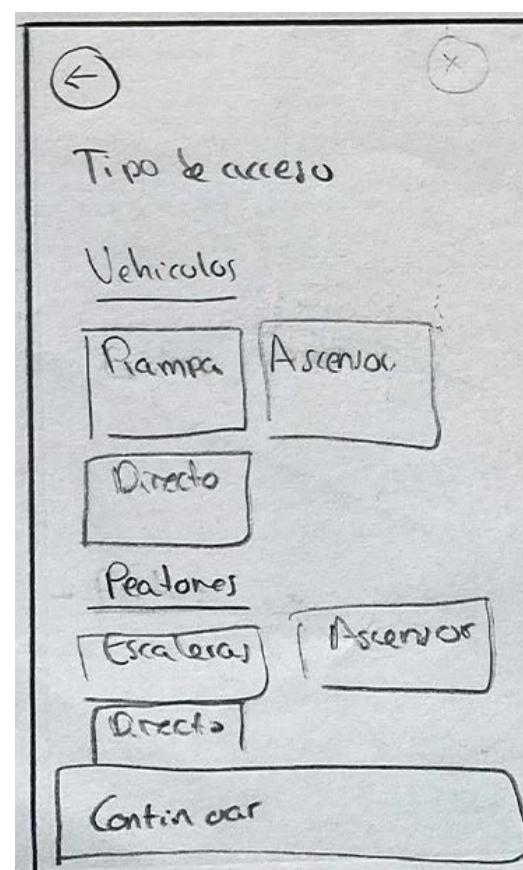 Tipo de acceso
Vehiculos
Rampa Ascensor
Directo
Peatones
Escaleras Ascensor
Directo
Continuar